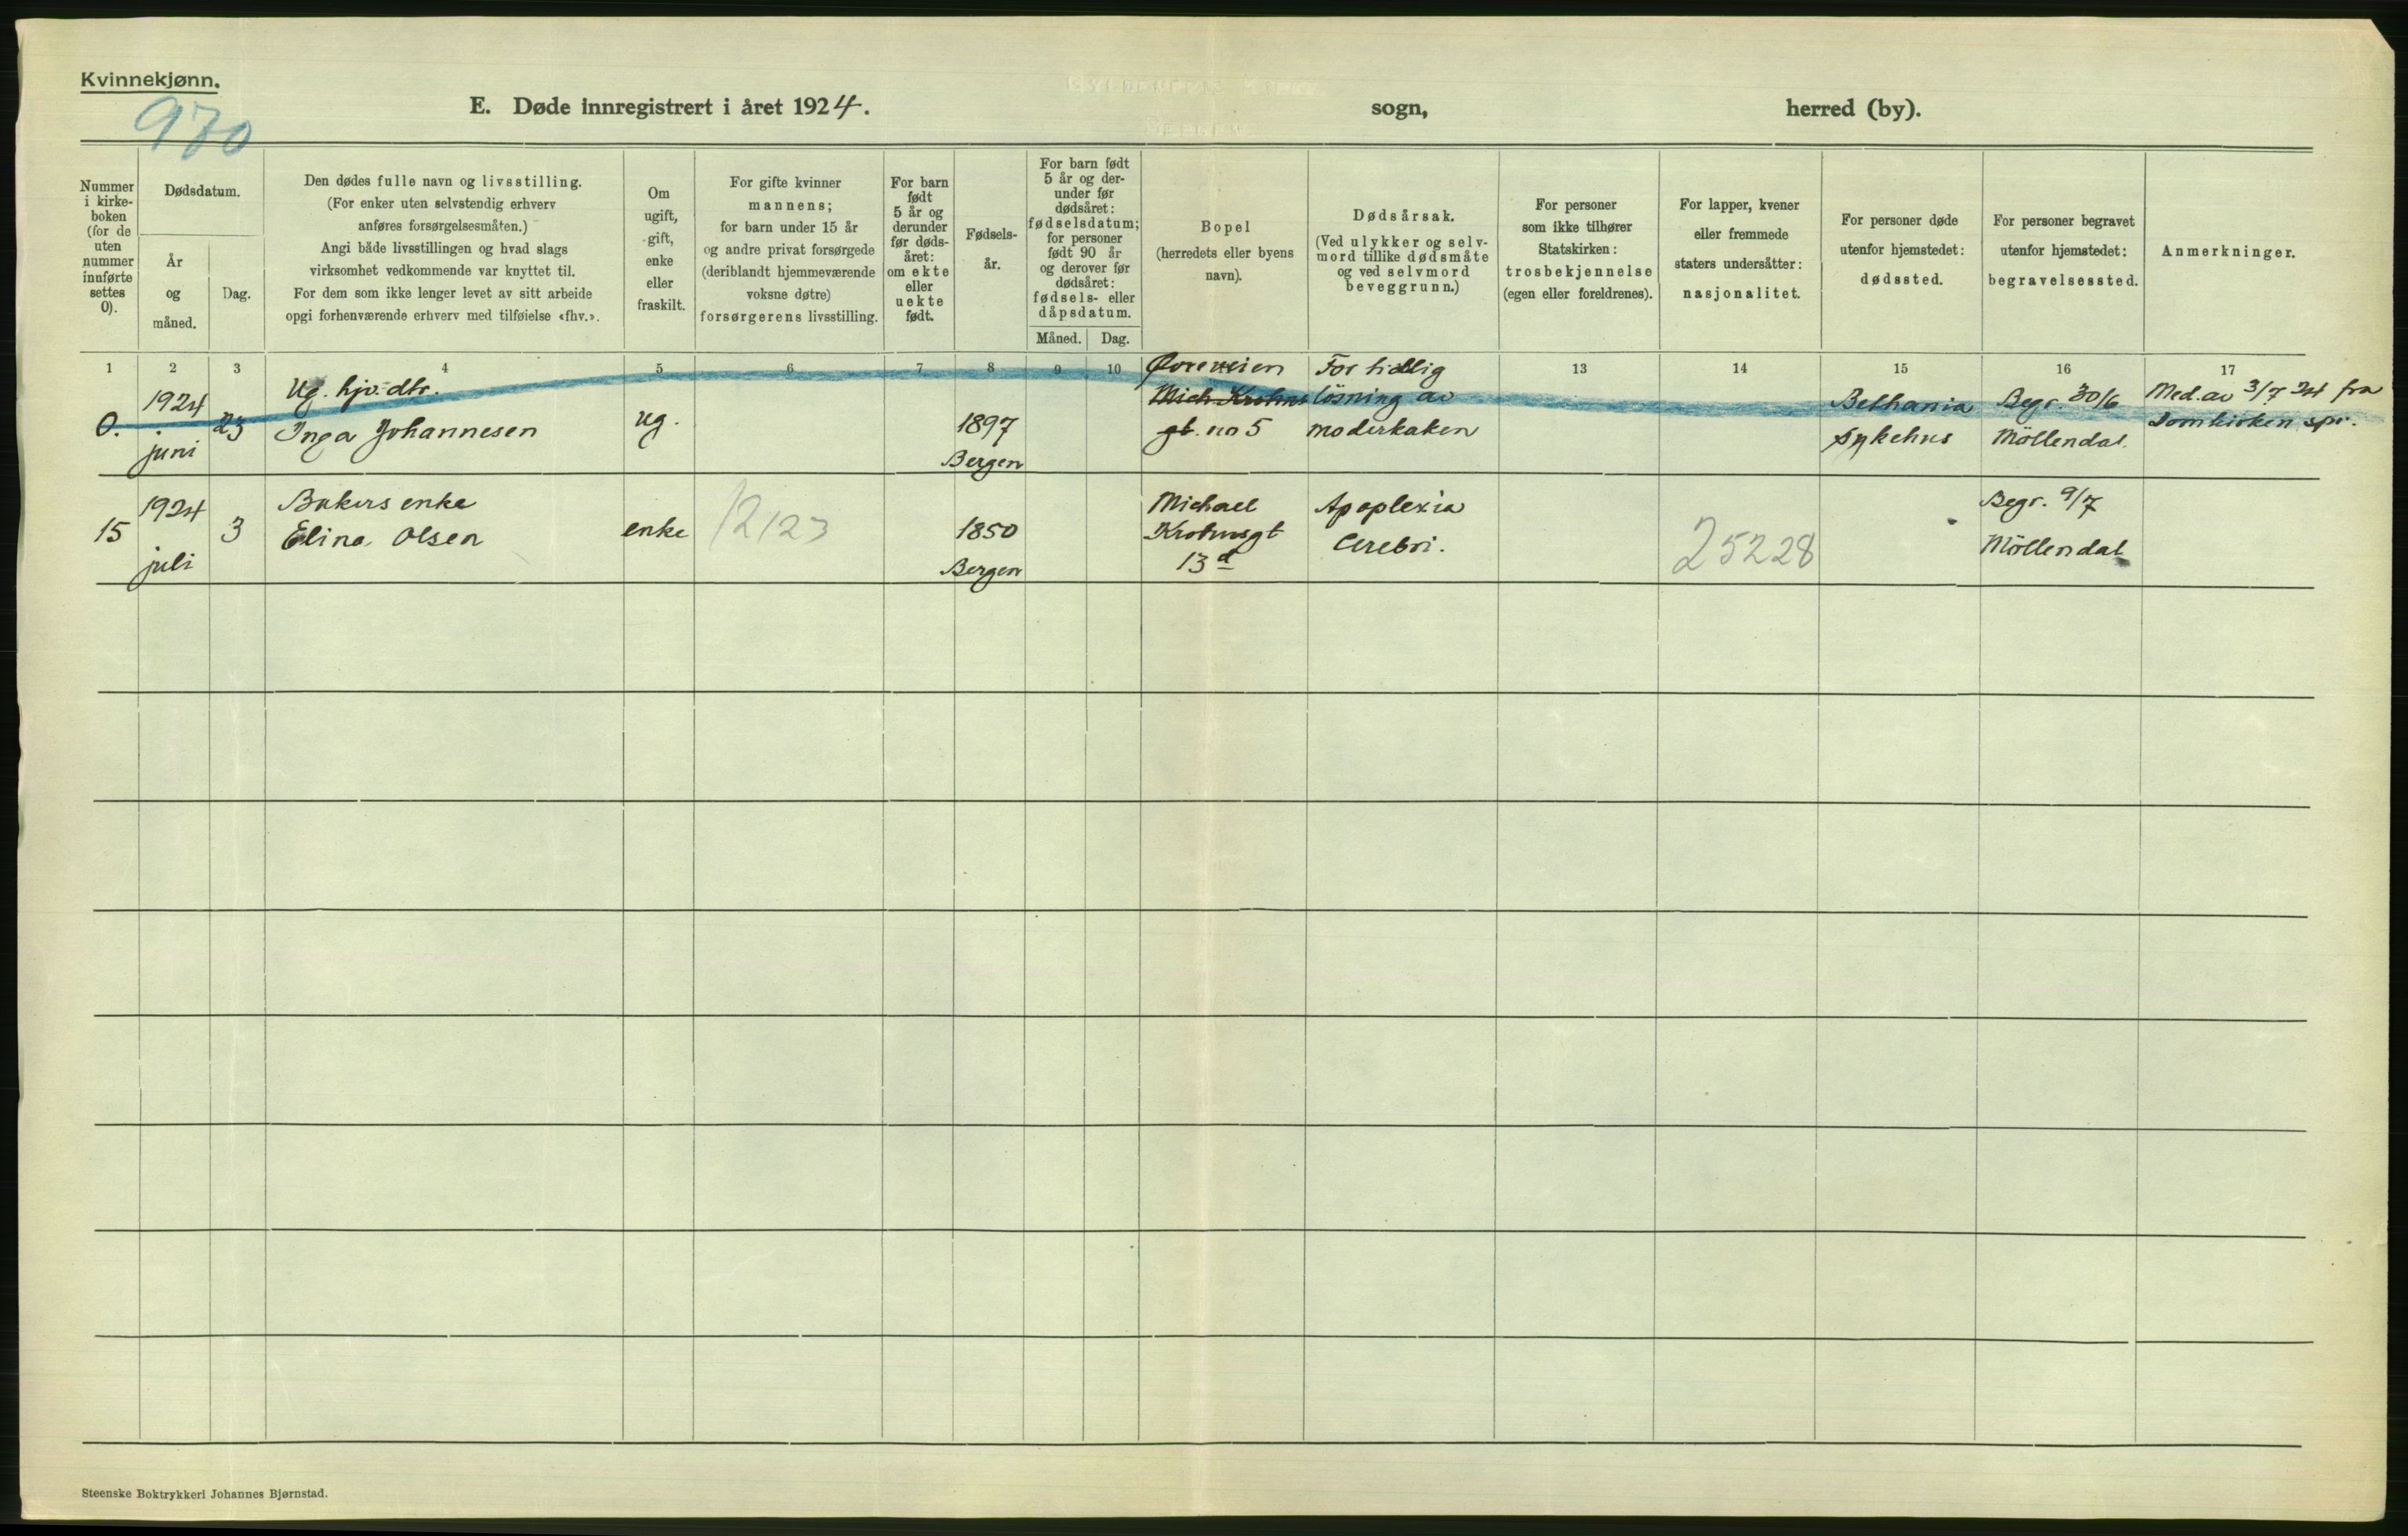 Kvinnekjønn.
970
E. Døde innregistrert i året 1924.
sogn,
herred (by).
Nummer
i kirke-
boken
(for de
uten
nummer
innførte
settes
0).
Dødsdatum.
År
og
måned.
Dag.
Den dødes fulle navn og livsstilling.
(For enker uten selvstendig erhverv
anføres forsørgelsesmåten.)
Angi både livsstillingen og hvad slags
virksomhet vedkommende var knyttet til.
For dem som ikke lenger levet av sitt arbeide
opgi forhenværende erhverv med tilføielse «fhv.».
Om
ugift,
gift,
enke
eller
fraskilt.
For gifte kvinner
mannens;
for barn under 15 år
og andre privat forsørgede
(deriblandt hjemmeværende
voksne døtre)
forsørgerens livsstilling.
For barn
født
5 år og
derunder
før døds-
året:
om ekte
eller
uekte
født.
Fødsels-
år.
For barn født
5 år og der-
under før
dødsåret:
fødselsdatum;
for personer
født 90 år
og derover før
dødsåret:
fødsels- eller
dåpsdatum.
Måned.
Dag.
Bopel
(herredets eller byens
navn).
Dødsårsak.
(Ved ulykker og selv-
mord tillike dødsmåte
og ved selvmord
beveggrunn.)
For personer
som ikke tilhører
Statskirken:
trosbekjennelse
(egen eller foreldrenes).
For lapper, kvener
eller fremmede
staters undersåtter:
nasjonalitet.
For personer døde
utenfor hjemstedet:
dødssted.
For personer begravet
utenfor hjemstedet:
begravelsessted.
Anmerkninger.
1 2 3 4 5 6 7 8 9 10 13 14 15 16 17
0.
1924
juni
23
Ug. hjv. dtr.
Inga Johannesen
ug.
1897
Bergen
Øvreveien
Mich. Krohns
gt. no 5
For tidlig
lösning av
moderkaken
Bethania
sykehus
Begr. 30/6
Möllendal.
Med. av 3/7 24 fra
Domkirken spr.
15
1924
juli
3
Bakers enke
Elina Olsen
enke
12123
1850
Bergen
Michael
Krohnsgt
13 d
Apoplexia
Cerebri.
25228
Begr. 9/7
Möllendal
Steenske Boktrykkeri Johannes Bjørnstad.